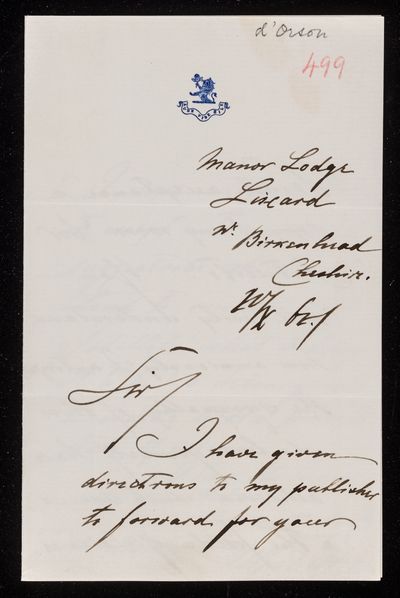 d'Orson
499
Manor Lodge
Liscard
Nr. Birkenhead
Cheshire.
Sir/
I have given
directions to my publisher
to forward for your